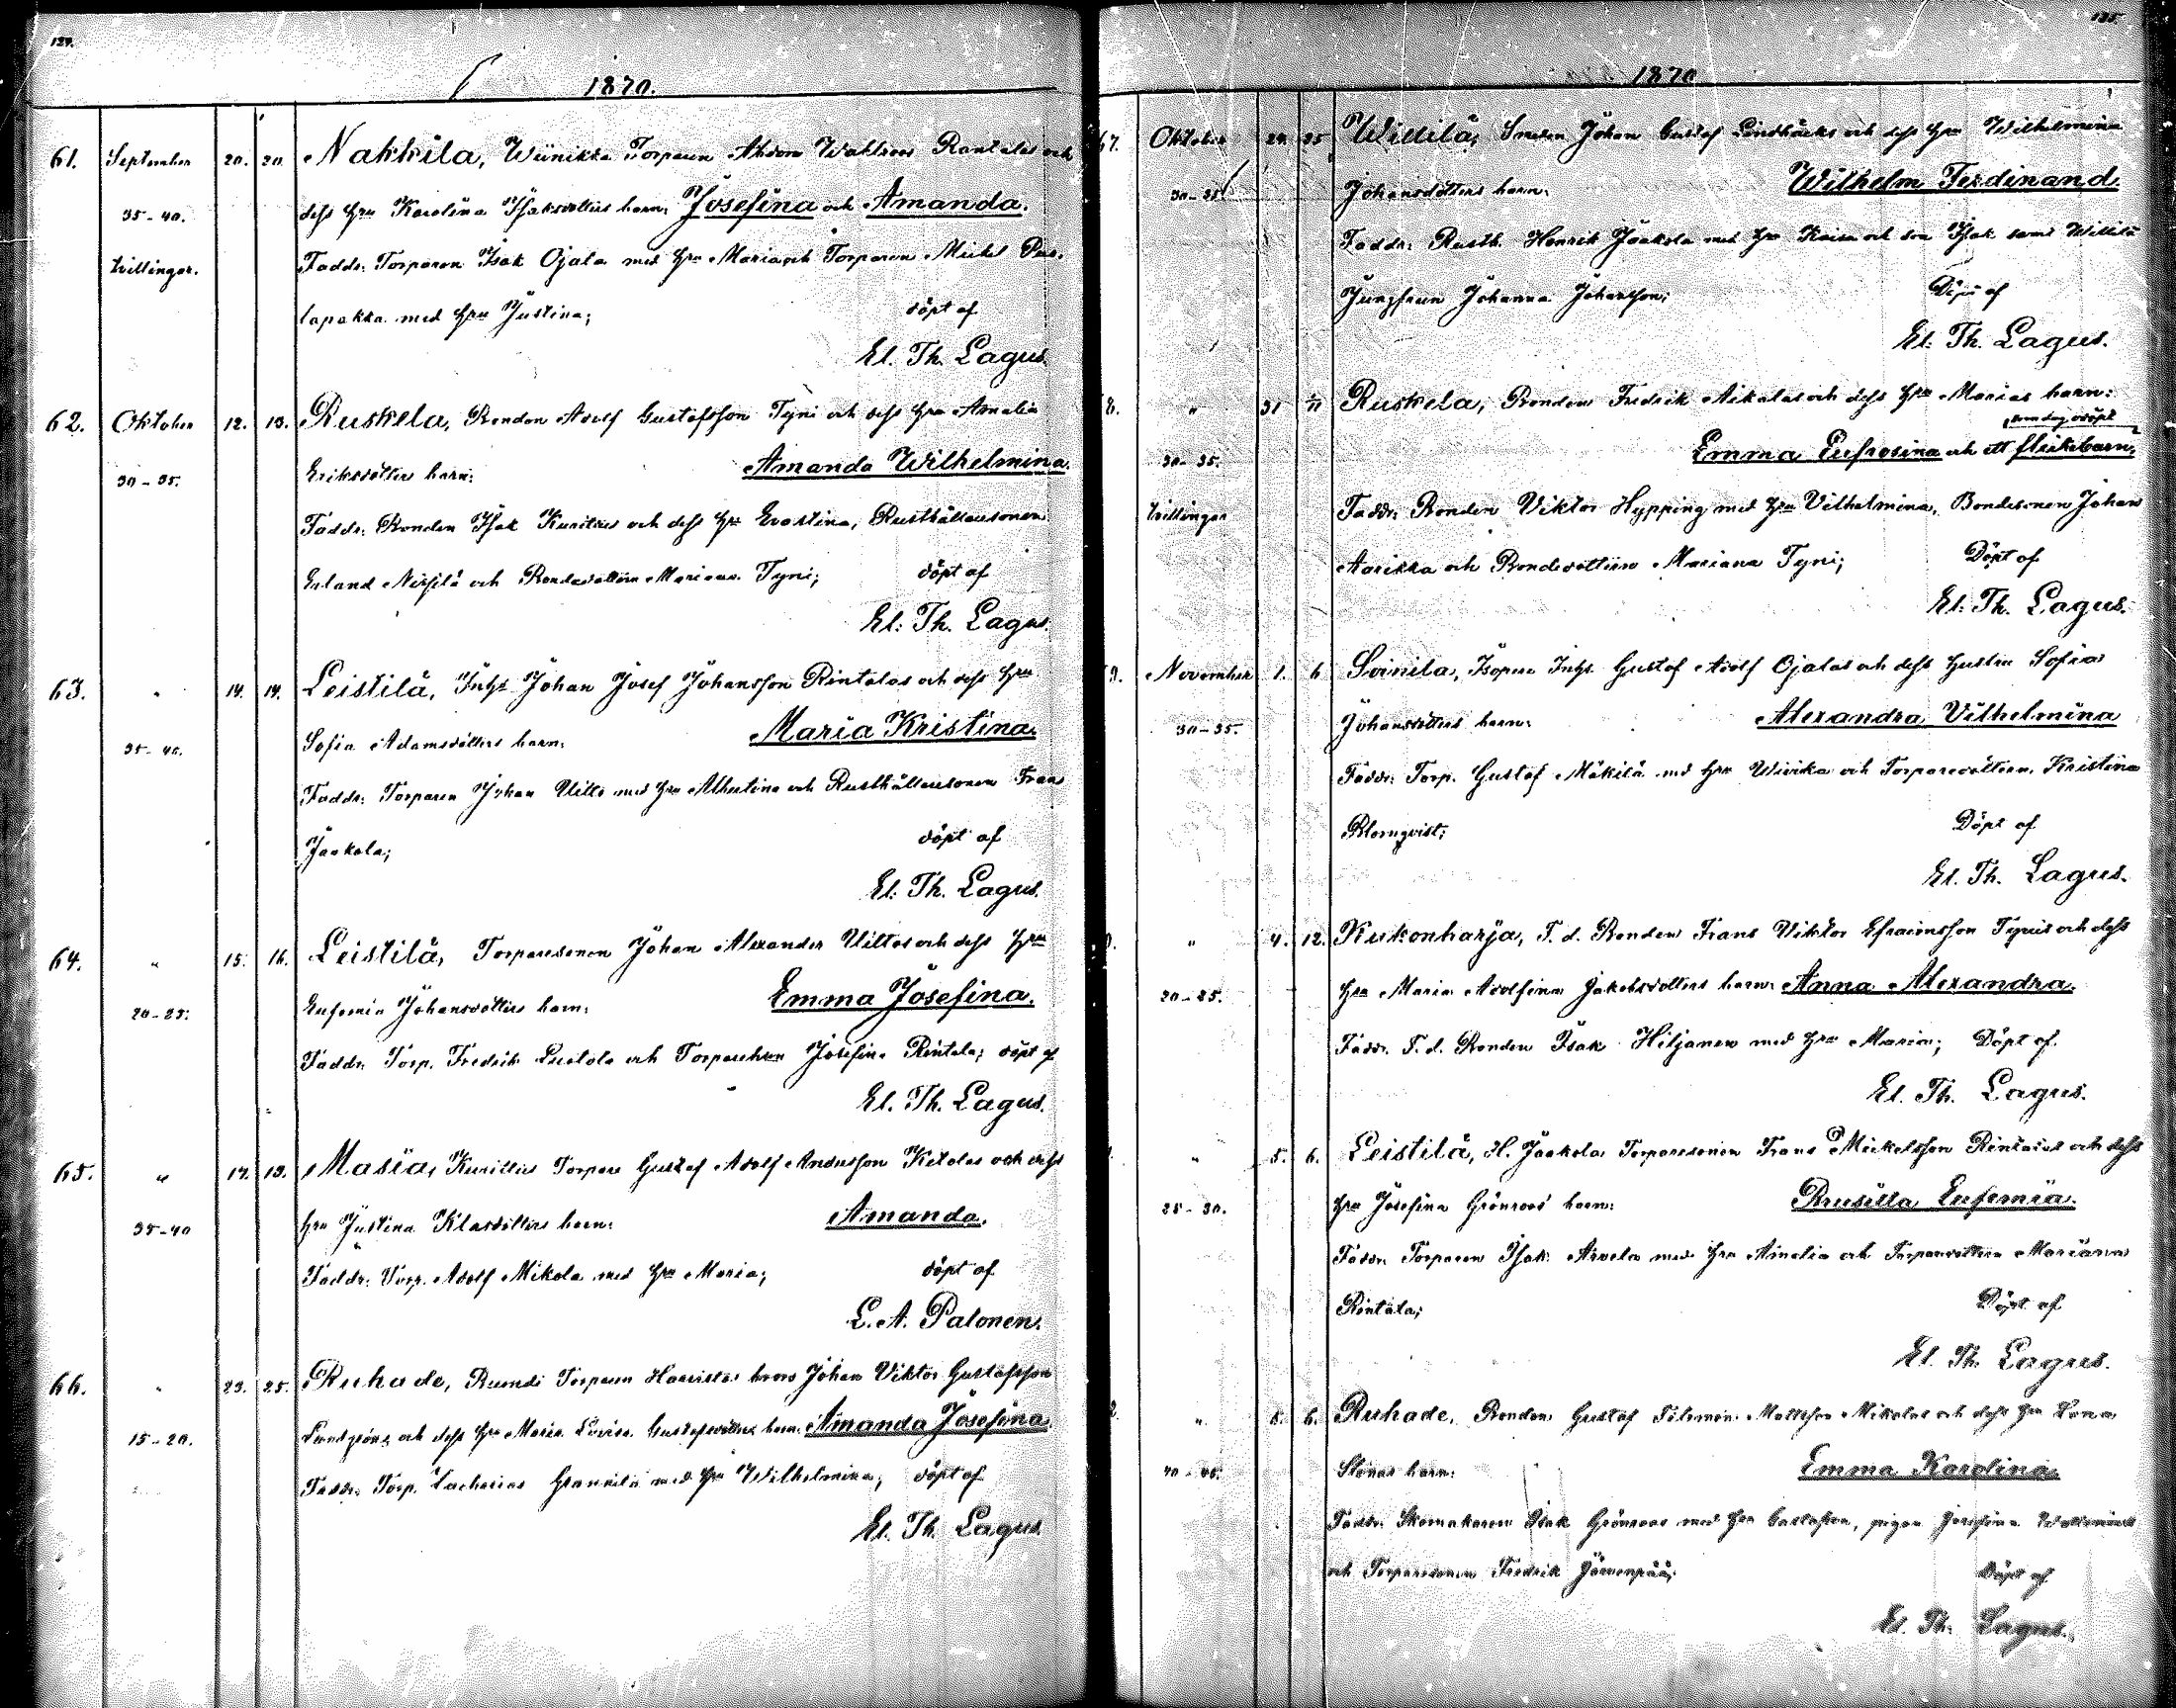 134.
1870.
61. September 20. 20. Nakkila, Wiinikka Torparen Wahlroos Rantalas och
35-40. dess hru Karolina Isaksdotters barn: Josefina och Amanda.
tvillingar. Faddr: Torparen Isak Ojala med hru Maria och Torparen Mickel Pas-
lapakka med hru Justina; döpt af
El. Th. Lagus.
62. Oktober 12. 13. Ruskela, Bonden Adolf Gustafsson Tyni och dess hru Amalia
30-35. Eriksdotters barn: Amanda Wilhelmina.
Faddr: Bonden Isak Kunittus och dess hru Evastina, Rusthållaresonen
Erland Nissilä och Bondedottern Mariana Tyni; döpt af
El. Th. Lagus.
63. " 14. 14. Leistilä, Inhs Johan Josef Johansson Rintalas och dess hru
35-40. Sofia Adamsdotters barn: Maria Kristina.
Faddr: Torparen Johan Uitto med hru Albertina och Rusthållaresonen Frans
Jaakola; döpt af
El. Th. Lagus.
64. " 15. 16. Leistilä, Torparesonen Johan Alexander Uittos och dess hru
20-25. Eufemia Johansdotters barn: Emma Josefina.
Faddr: Torp. Fredrik och Torparehrun Josefina Rintala; döpt af
El. Th. Lagus.
65. " 17. 19. Masia, Kunittus Torpare Gustaf Adolf Andersson Ketolas och dess
35-40 hru Justina Klasdotters barn: Amanda.
Faddr: Torp. Adolf Mikola med hru Maria; döpt af
L. A. Palonen.
66. " 23. 25. Ruhade, Torparen Johan Viktor Gustafsson
15-20. och dess hru Maria Lovisa Gustafsdotters barn: Amanda Josefina.
Faddr: Torp. Zacharias Grannila med hru Wilhelmina; döpt af
El. Th. Lagus.
135.
1870
67. Oktober 24. 25. Willilä, Smeden Johan Gustaf Lindbäcks och dess hru Wilhelmina
30-35 Johansdotters barn: Wilhelm Ferdinand.
Faddr: Rusth. Henrik Jaakola med hru Kaisa och son Isak samt Willilä
Jungfrun Johanna Johansson; Döpt af
El. Th. Lagus.
8. " 31 Ruskela, Bonden Fredrik Mikolas och dess hru Marias barn:
som dog odöpt
30-35. Emma Eufrosina och ett flickebarn;
tvillingar Faddr: Bonden Viktor Hypping med hru Vilhelmina, Bondesonen Johan
Aarikka och Bondedottern Mariana Tyni; Döpt af
El. Th. Lagus.
9. November 1. 6 Soinila, Isopere Inhs Gustaf Adolf Ojalas och dess hustru Sofia
30-35. Johansdotters barn: Alexandra Vilhelmina
Faddr: Torp. Gustaf Mäkilä med hru Wivika och Torparedottern Kristina
Blomqvist; Döpt af
El. Th. Lagus.
" 4. 12. Kukonharja, F. d. Bonden Frans Viktor Efraimsson Tynis och dess
20-25. hru Maria Adolfina Jakobsdotters barn: Anna Alexandra.
Faddr. F. d. Bonden Isak Hiljanen med hru Maria; Döpt af.
El. Th. Lagus.
" 5. 6. Leistilä, H. Jaakola Torparesonen Frans Mickelsson Rintalas och dess
25-30. hru Josefina Grönroos' barn: Brusilla Eufemia.
Faddr: Torparen Isak Arvela med hru Amalia och Torparedottern Mariana
Rintala; Döpt af
El. Th. Lagus.
" 5. 6. Ruhade, Bonden Gustaf Filemon Mattsson Mikolas och dess hru Lona
40-45. Stinas barn: Emma Karolina.
Faddr: Skomakaren Isak Grönroos med hru Gustafva, pigan Josefina
och Torparesonen Fredrik Järvenpää; Döpt af
El. Th. Lagus.